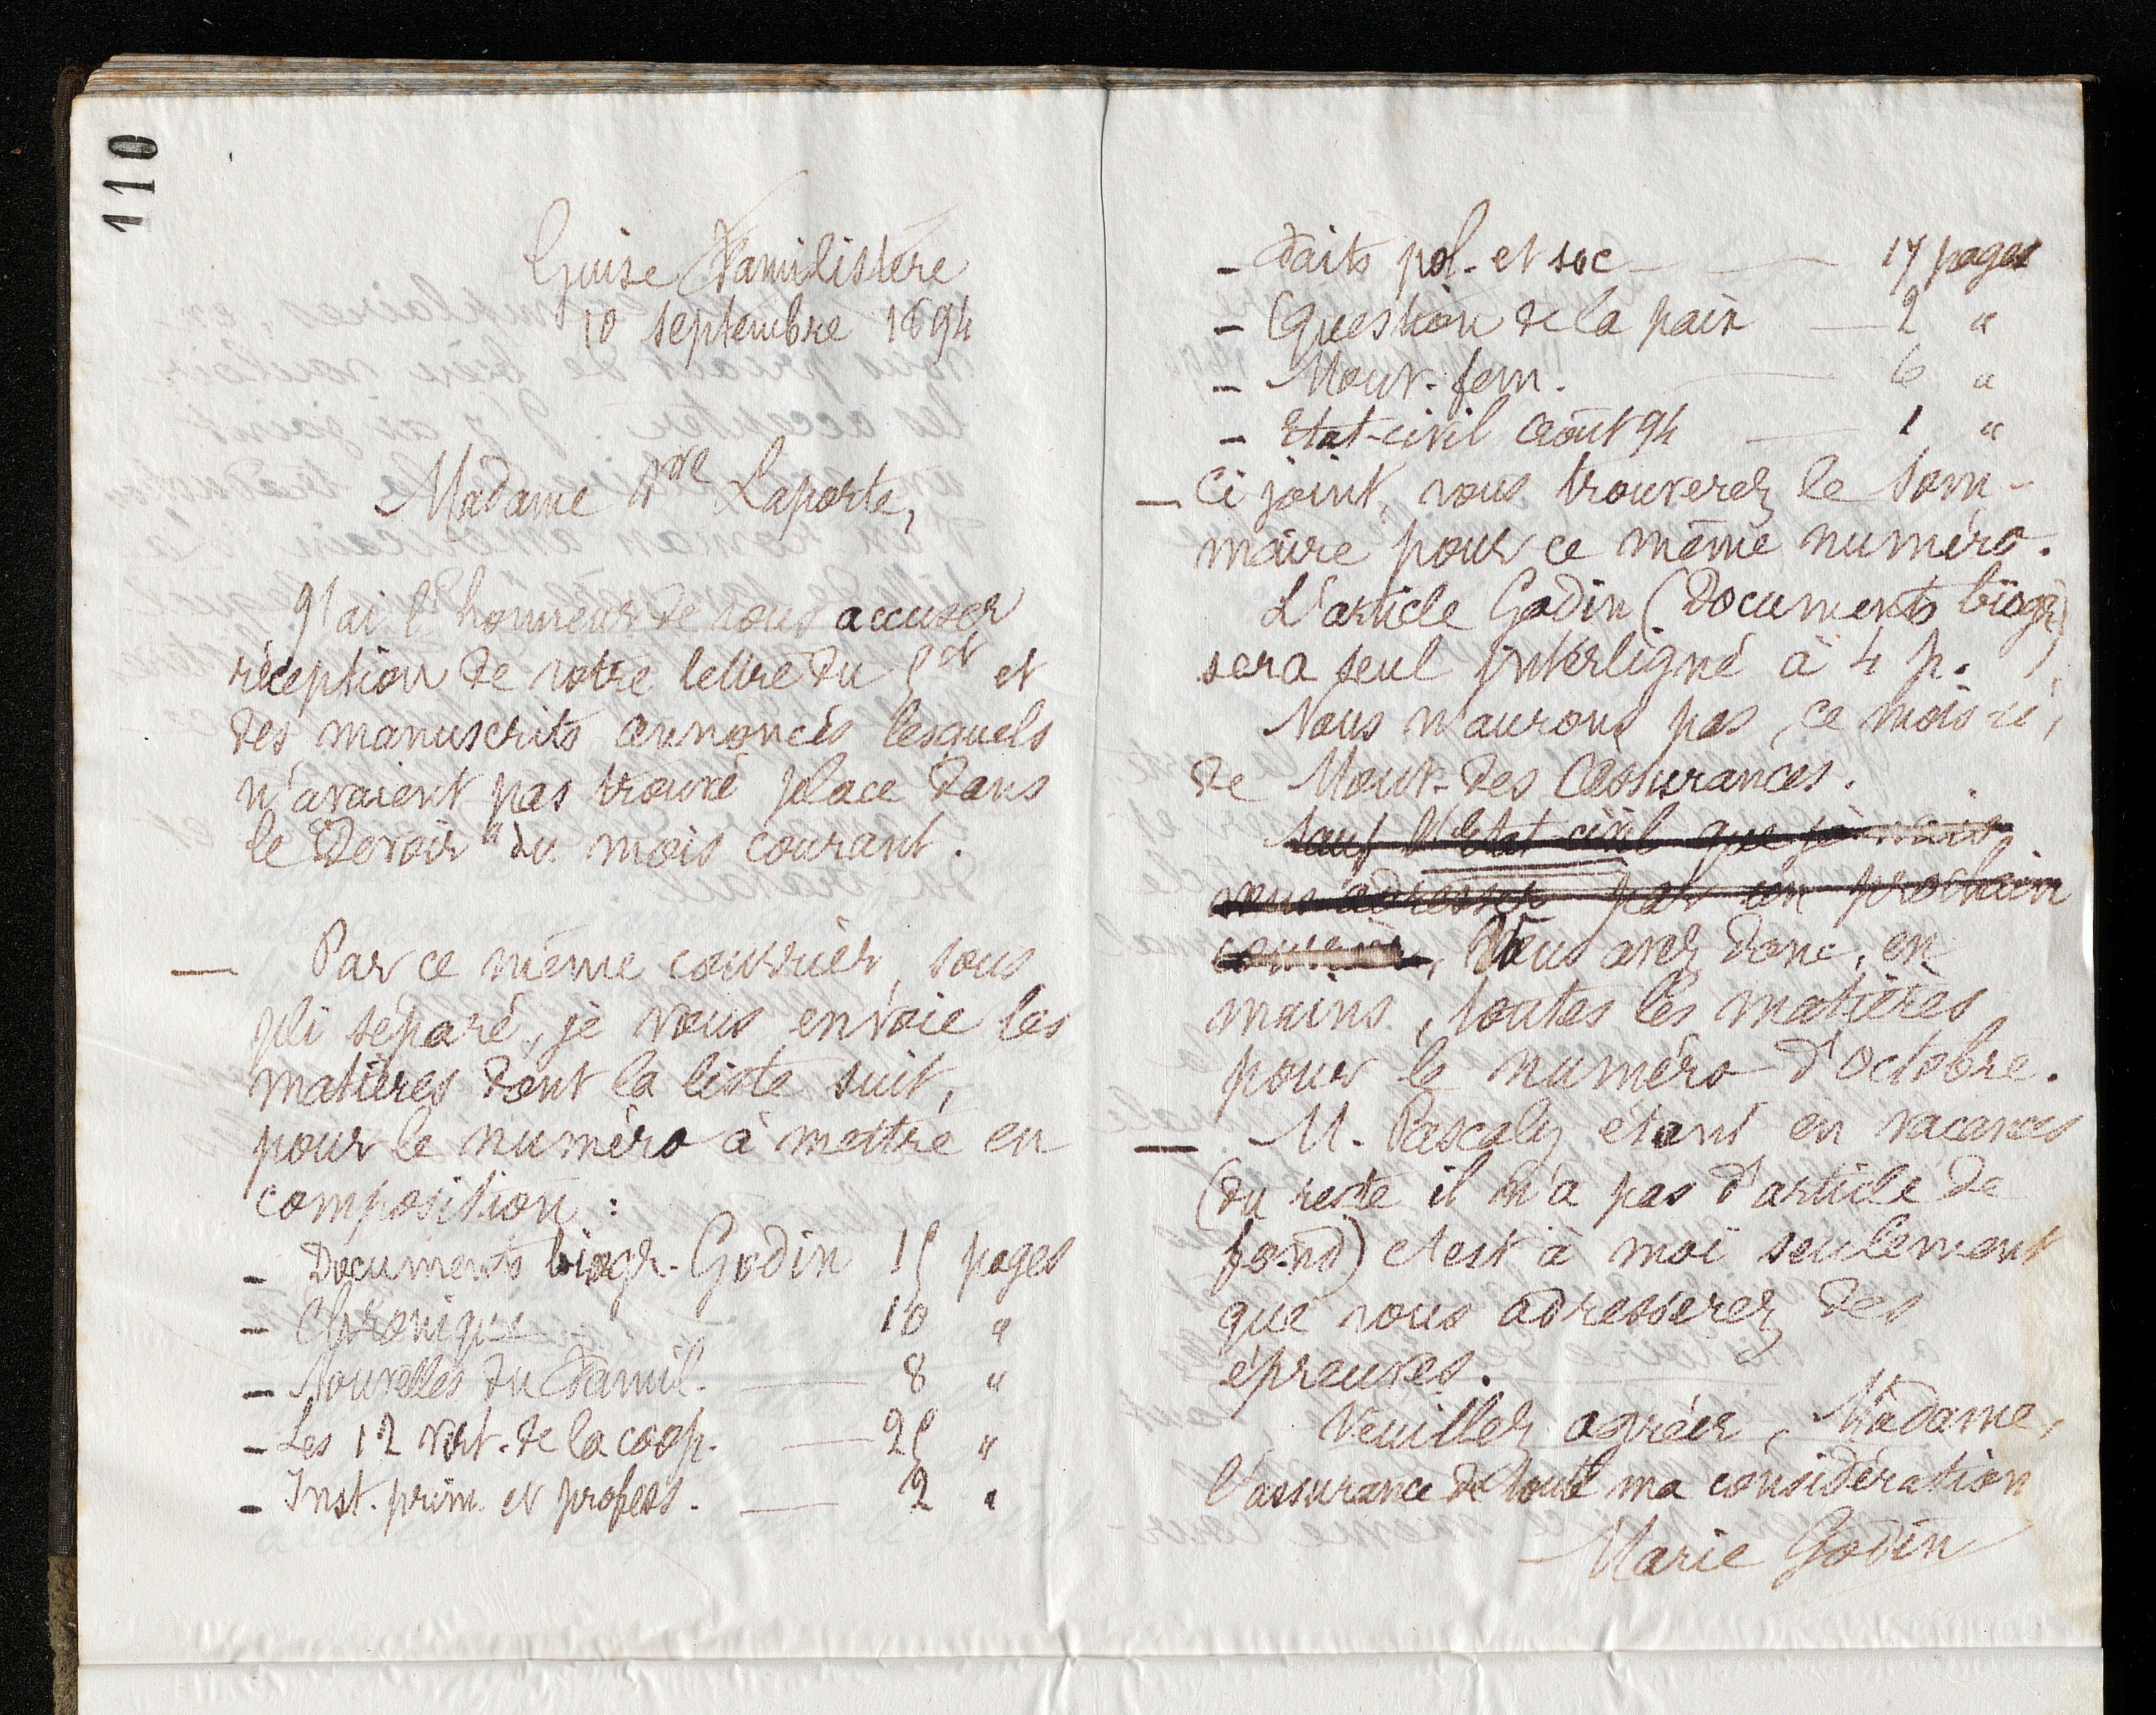 110
Guise Familistère
10 septembre 1894
Madame Vve Laporte,
J'ai l'honneur de vous accuser
réception de votre lettre du 5 ct et
des manuscrits annoncés lesquels
n'avaient pas trouvé place dans
le "Devoir" du mois courant.
— Par ce même courrier, sous
pli séparé, je vous envoie les
matières dont la liste suit,
pour le numéro à mettre en
composition :
- Documents biogr. Godin 15 pages
- Chronique 10 "
- Nouvelles du Famil. — 8 "
- Les 12 vert. de la coop. — 25 "
- Inst. prim. et profess. — 2 "
- Faits pol. et soc — 17 pages
- Question de la paix — 2 "
- Mouv. fem. — 6 "
- Etat-civil Août 94 — 1 "
— Ci joint, vous trouverez le som-
maire pour ce même numéro.
L'article Godin (Documents biogr.)
sera seul interligné à 4 p.
Nous n'aurons pas, ce mois-ci,
de Mouv. des Assurances.
Sauf l'Etat-civil que je vais
vous adresser par un prochain
courrier, Vous avez donc, en
mains, toutes les matières
pour le numéro d'Octobre.
— M. Pascaly étant en vacances
(du reste il n'a pas d'article de
fond) c'est à moi seulement
que vous adresserez des
épreuves.
Veuillez agréer, Madame,
l'assurance de toute ma considération
Marie Godin